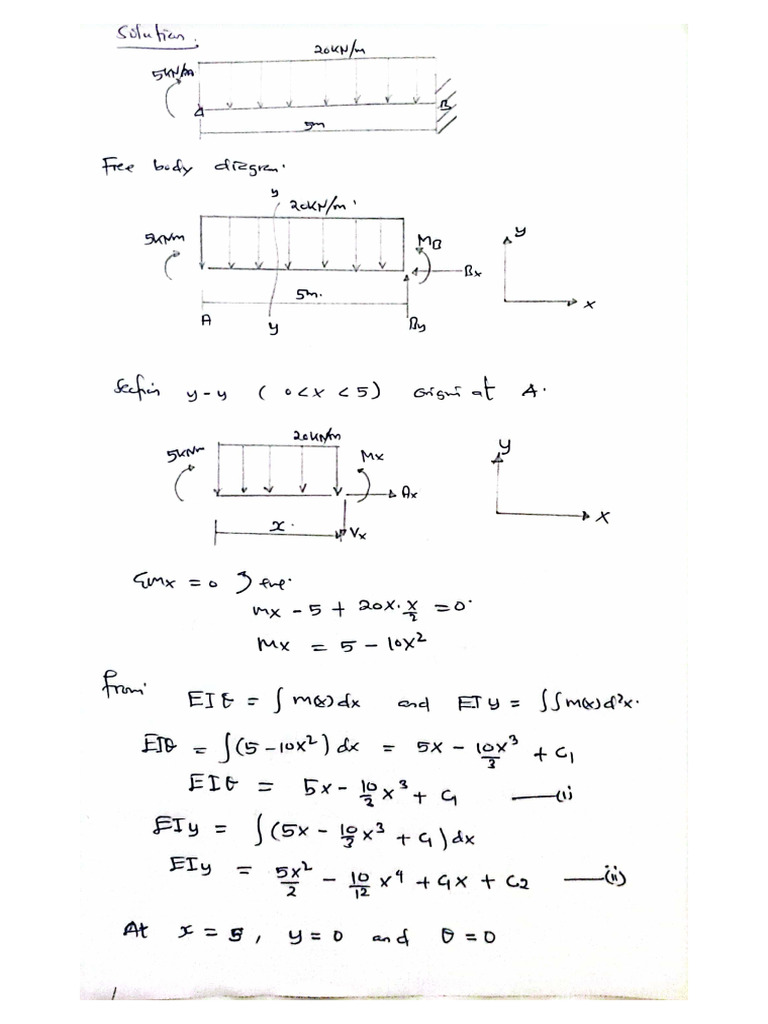 Solution.
20KN/m
5KN/m
B
5m
Free body diagram.
y
20KN/m
5KNm
MB
Bx
y
5m.
x
A
y
By
Section y-y ( 0<x<5) origin at A.
20KN/m
5KNm
Mx
Ax
y
x.
Vx
x
ΣMx = 0 +ve.
Mx - 5 + 20x. x/2 = 0.
Mx = 5 - 10x²
from.
EIθ = ∫ M(x) dx and EIy = ∫∫ M(x) d²x.
EIθ = ∫(5 - 10x²) dx = 5x - 10x³/3 + C1
EIθ = 5x - 10/3 x³ + C1 —(i)
EIy = ∫(5x - 10/3 x³ + C1) dx
EIy = 5x²/2 - 10/12 x⁴ + C1x + C2 —(ii)
At x = 5, y = 0 and θ = 0